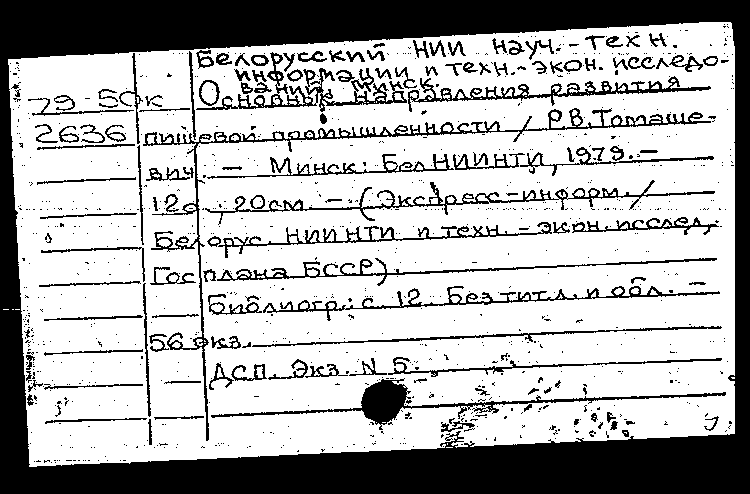 Белорусский НИИ науч.-техн.
информации и техн.-экон. исследо-
ваний. Минск.
79-50к Основные направления развития
2636 пищевой промышленности / Р.В. Томаше-
вич. - Минск: БелНИИНТИ, 1979. -
12с.; 20см. - (Экспресс-информ. /
Белорус. НИИНТИ и техн.-экон. исслед.
Госплана БССР).
Библиогр.: с. 12. Без тит. л. и обл. -
56 экз.
ДСП. Экз. N 5.